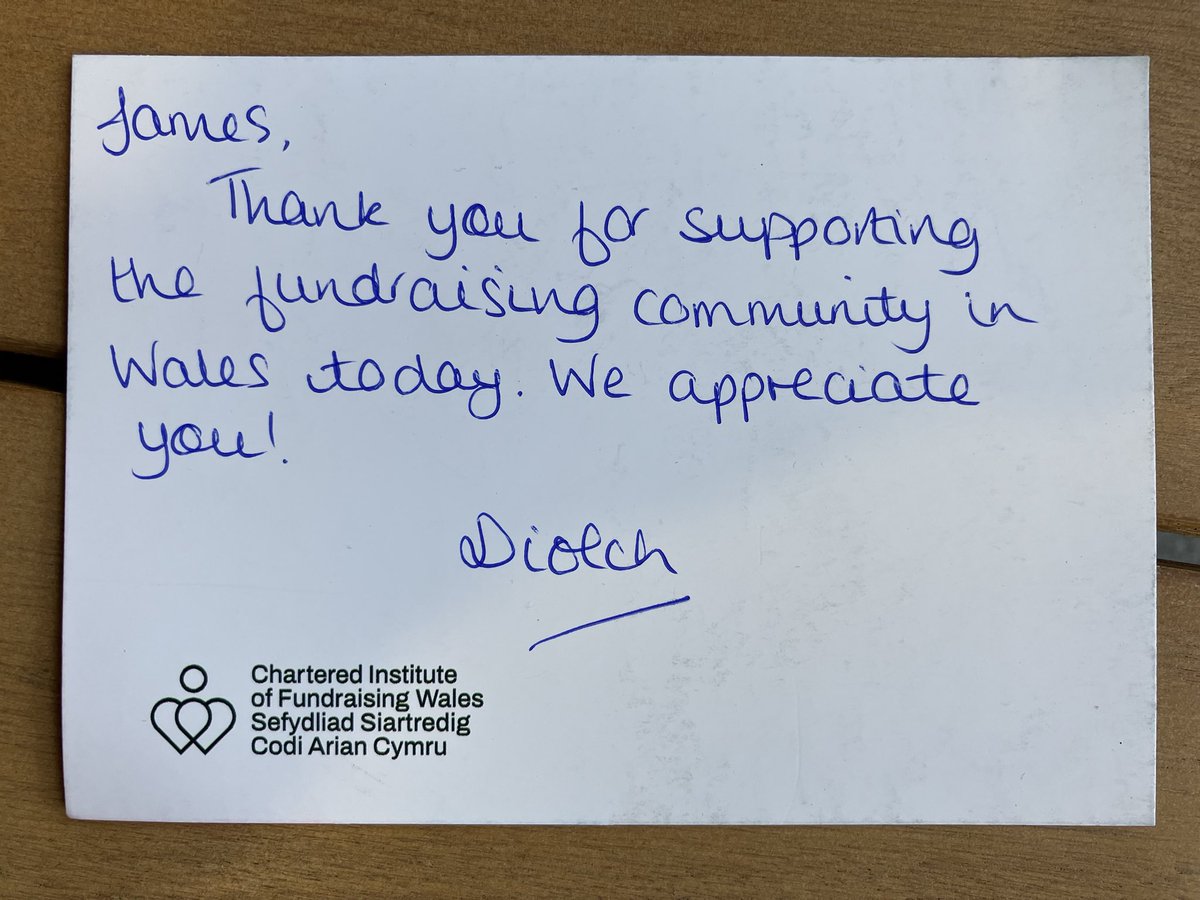 James,
Thank you for supporting
the fundraising community in
Wales today. We appreciate
you!
Diolch
Chartered Institute
of Fundraising Wales
Sefydliad Siartredig
Codi Arian Cymru